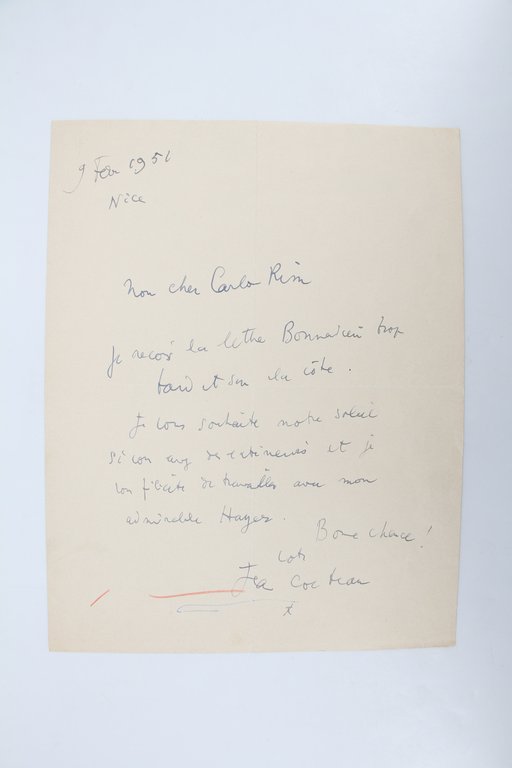 9 Fev 1951
Nice
Mon cher Carlo Rim
Je reçois la lettre Bonnardin trop
tard et sur la côte.
Je vous souhaite notre soleil
si vous avez des extérieurs et je
vous félicite de travailler avec mon
admirable Hayer.
Bonne chance!
votre
Jean Cocteau